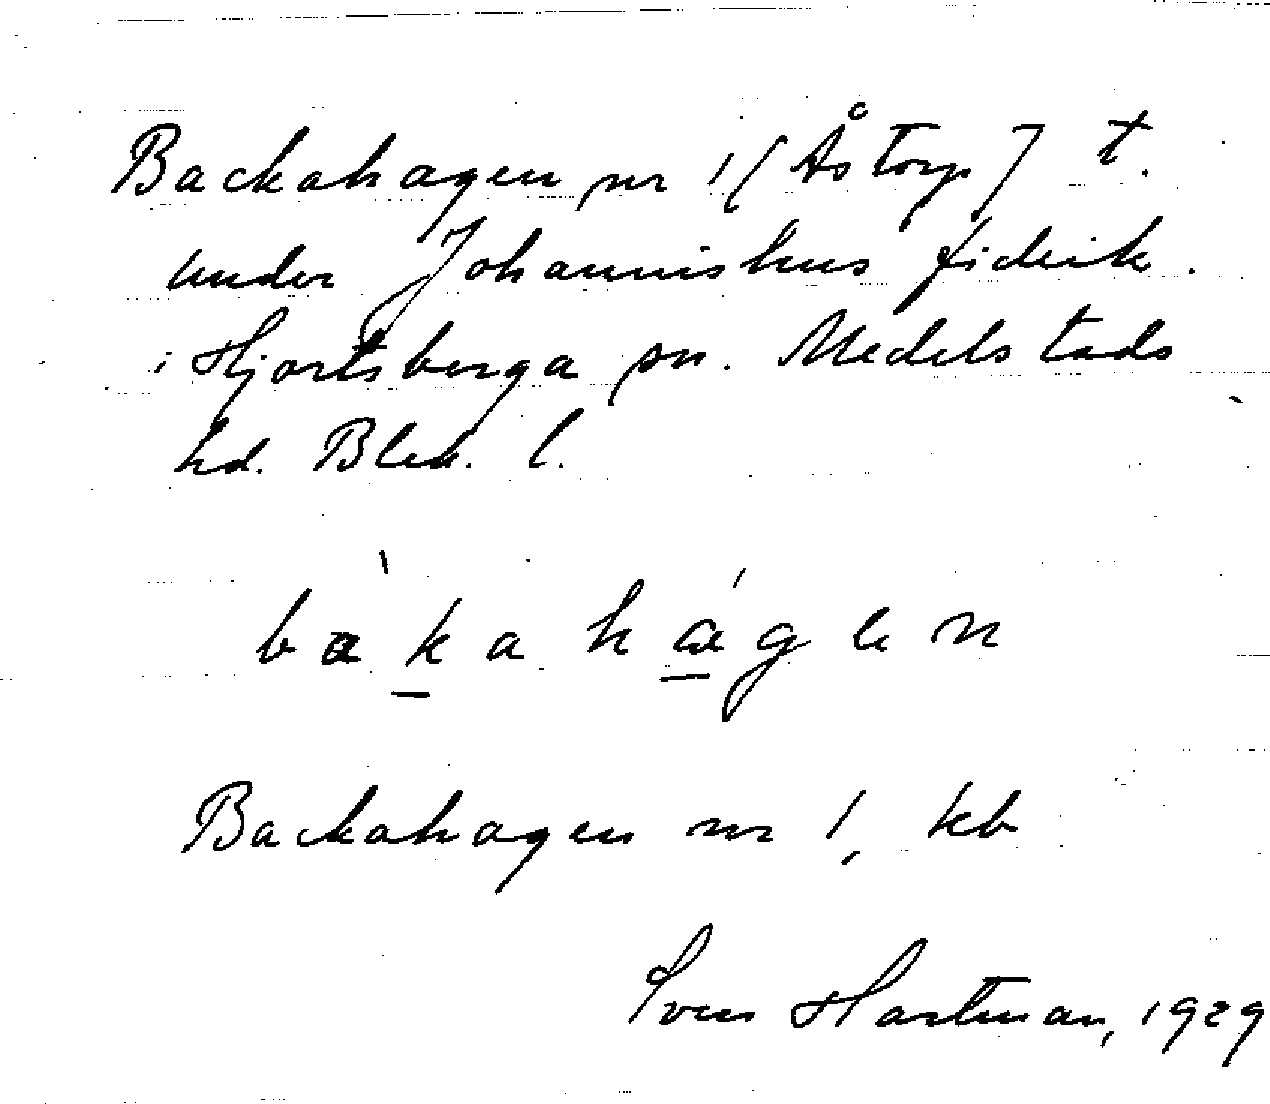 Backahagen nr 1 [Åstorp] t.
under Johannishus fideik.
i Hjortsberga sn. Medelstads
hd. Blek. l.
bàkahágen
Backahagen nr 1, kb
Sven Hartman, 1929